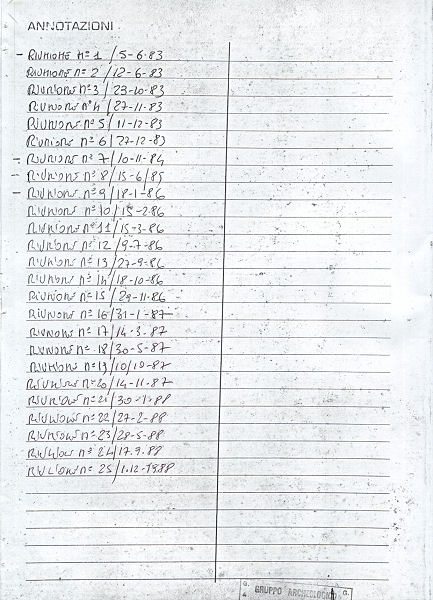 ANNOTAZIONI
- RIUNIONE n° 1 / 5-6-83
RIUNIONE n° 2 / 12-6-83
RIUNIONE n° 3 / 23-10-83
RIUNIONE n° 4 / 27-11-83
RIUNIONE n° 5 / 11-12-83
RIUNIONE n° 6 / 27-12-83
- RIUNIONE n° 7 / 10-11-84
- RIUNIONE n° 8 / 15-6/85
- RIUNIONE n° 9 / 18-1-86
RIUNIONE n° 10 / 15-2-86
RIUNIONE n° 11 / 15-3-86
RIUNIONE n° 12 / 9-7-86
RIUNIONE n° 13 / 27-9-86
RIUNIONE n° 14 / 18-10-86
RIUNIONE n° 15 / 29-11-86
RIUNIONE n° 16 / 31-1-87
RIUNIONE n° 17 / 14-3-87
RIUNIONE n° 18 / 30-5-87
RIUNIONE n° 19 / 10/10-87
RIUNIONE n° 20 / 14-11-87
RIUNIONE n° 21 / 30-1-88
RIUNIONE n° 22 / 27-2-88
RIUNIONE n° 23 / 28-5-88
RIUNIONE n° 24 / 17.9.88
RIUNIONE n° 25 / 1.12-1988
GRUPPO ARCHEOLOGICO